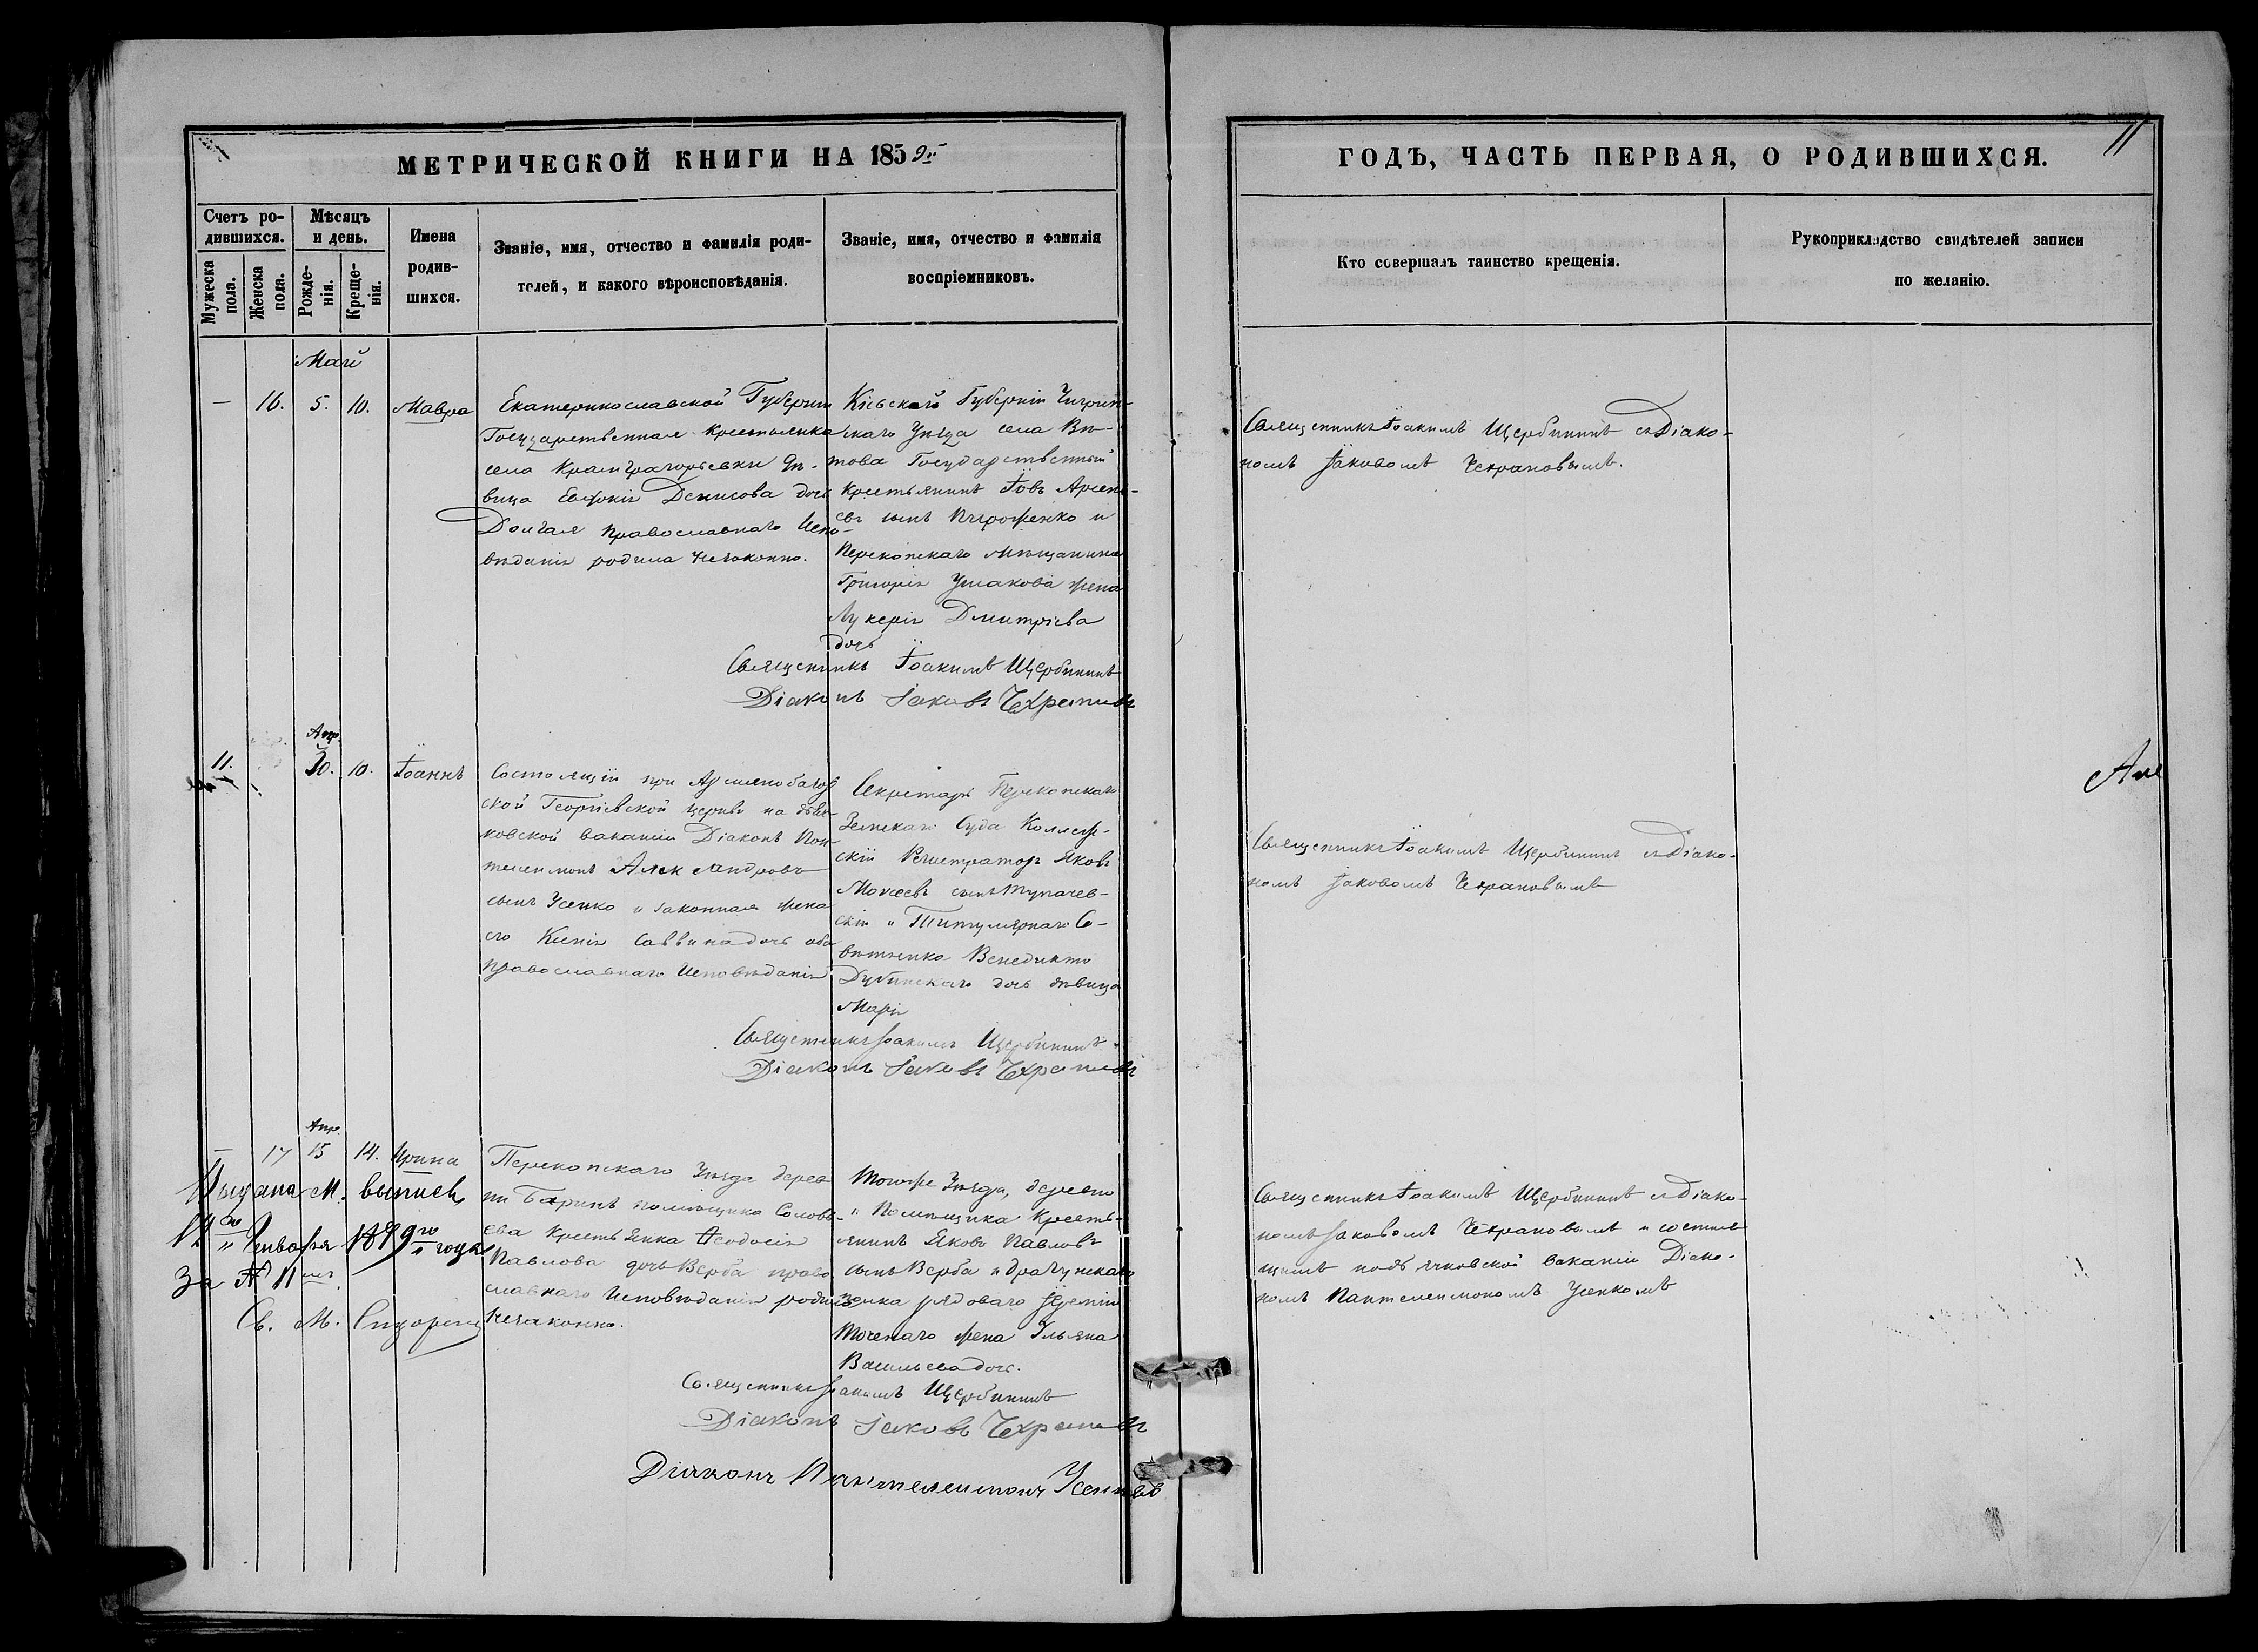 МЕТРИЧЕСКОЙ КНИГИ НА 1859й
Счетъ ро-
дившихся.
Мѣсяцъ
и день.
Мужеска
пола.
Женска
пола.
Рожде-
нія.
Креще-
нія.
Имена
родив-
шихся.
Званіе, имя, отчество и фамилія роди-
телей, и какого вѣроисповѣданія.
Званіе, имя, отчество и фамилія
воспріемниковъ.
Май
— 16. 5. 10. Мавра
Екатеринославской Губерніи
Государственная крестьянка
села дѣ-
вица Денисова дочь
Долгая православнаго Испо-
вѣданія родила незаконно.
Кіевской Губерніи Чигрин-
скаго Уѣзда села Ви-
това Государственный
крестьянинъ Іовъ Арсені-
евъ сынъ и
Перекопскаго мѣщанина
Григорія Ушакова жена
Лукерія Дмитріева
дочь
Священникъ Іоакимъ Щербининъ
Діаконъ Іаковъ Чехрановъ
Апр.
11. 30. 10. Іоаннъ
Состоящій при Армянобазар
ской Георгіевской церкви на дьяч-
ковской ваканіи Діаконъ Пан-
телеимонъ Александровъ
сынъ Усенко и законная жена
его Ксенія Саввина дочь оба
православнаго Исповѣданія
Секретарь Перекопскаго
Земскаго Суда Коллеж-
скій Регистраторъ Яковъ
Моисеевъ сынъ Тупачев-
скій и Титулярнаго Со-
вѣтника Венедикта
Дубинскаго дочь дѣвица
Марія
Священникъ Іоакимъ Щербининъ
Діаконъ Іаковъ Чехрановъ
Апр.
— 17 15 14. Ирина
Перекопскаго Уѣзда дерев
ни Баринъ помѣщика Соловь-
ева крестьянка Ѳеодосія
Павлова дочь Верба право
славнаго Исповѣданія родила
незаконно.
Тогоже Уѣзда, деревни
и Помѣщика кресть-
янинъ Яковъ Павловъ
сынъ Верба и драгунскаго
полка рядоваго
жена Ульяна
Васильева дочь.
Выдана М. выпись
Генваря 1879го года
За № 11мъ
Св. М.
Священникъ Іоакимъ Щербининъ
Діаконъ Іаковъ Чехрановъ
Діаконъ Пантелеимонъ Усенко
11
ГОДЪ, ЧАСТЬ ПЕРВАЯ, О РОДИВШИХСЯ.
Кто совершалъ таинство крещенія.
Рукоприкладство свидѣтелей записи
по желанію.
Священникъ Іоакимъ Щербининъ съ Діако-
номъ Іаковомъ Чехрановымъ.
Священникъ Іоакимъ Щербининъ съ Діако-
номъ Іаковомъ Чехрановымъ
Священникъ Іоакимъ Щербининъ съ Діако-
номъ Іаковомъ Чехрановымъ и состоя-
щимъ ваканіи Діако-
номъ Пантелеимономъ Усенкомъ